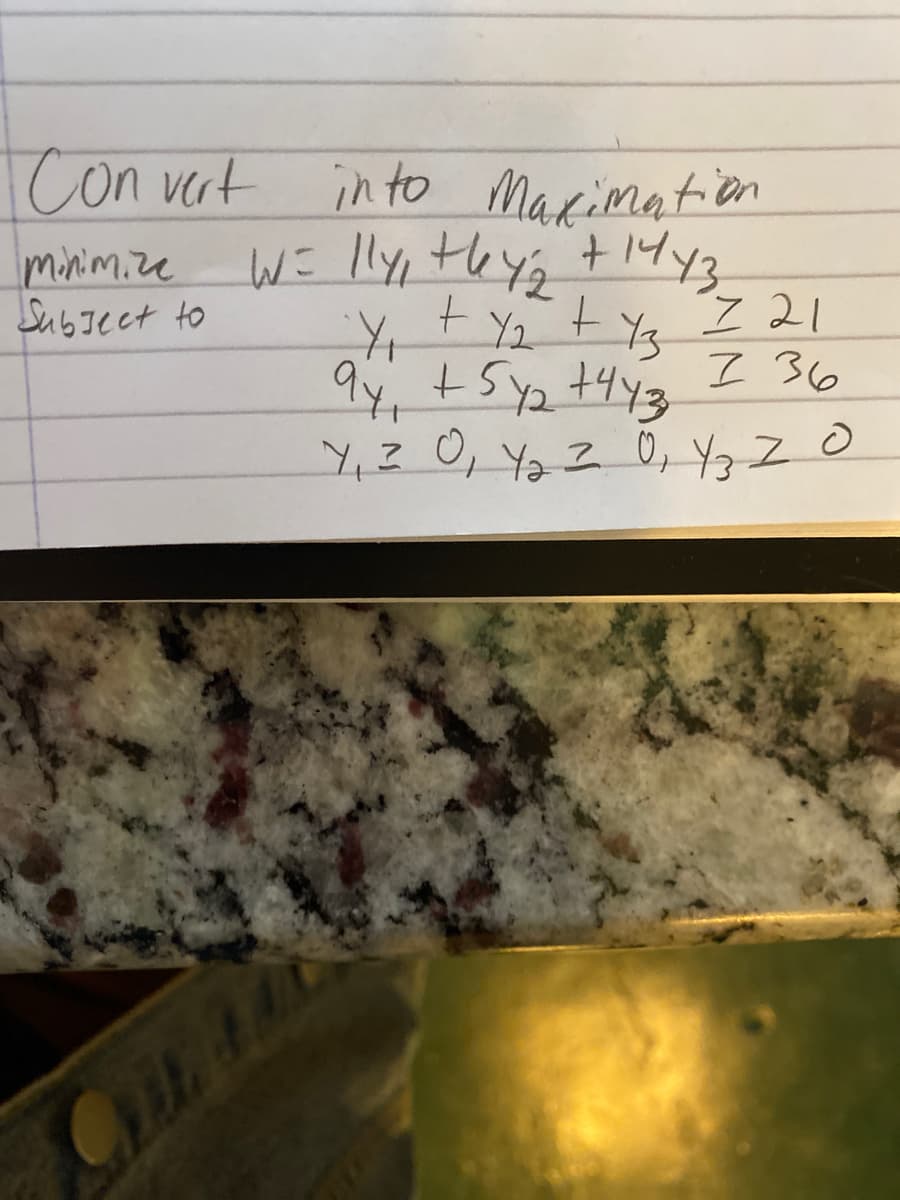 Convert into Maximation
minimize W= 11y₁ +6y₂ + 14y₃
Subject to y₁ + y₂ + y₃ ≥ 21
9y₁ + 5y₂ +4y₃ ≥ 36
y₁ ≥ 0, y₂ ≥ 0, y₃ ≥ 0